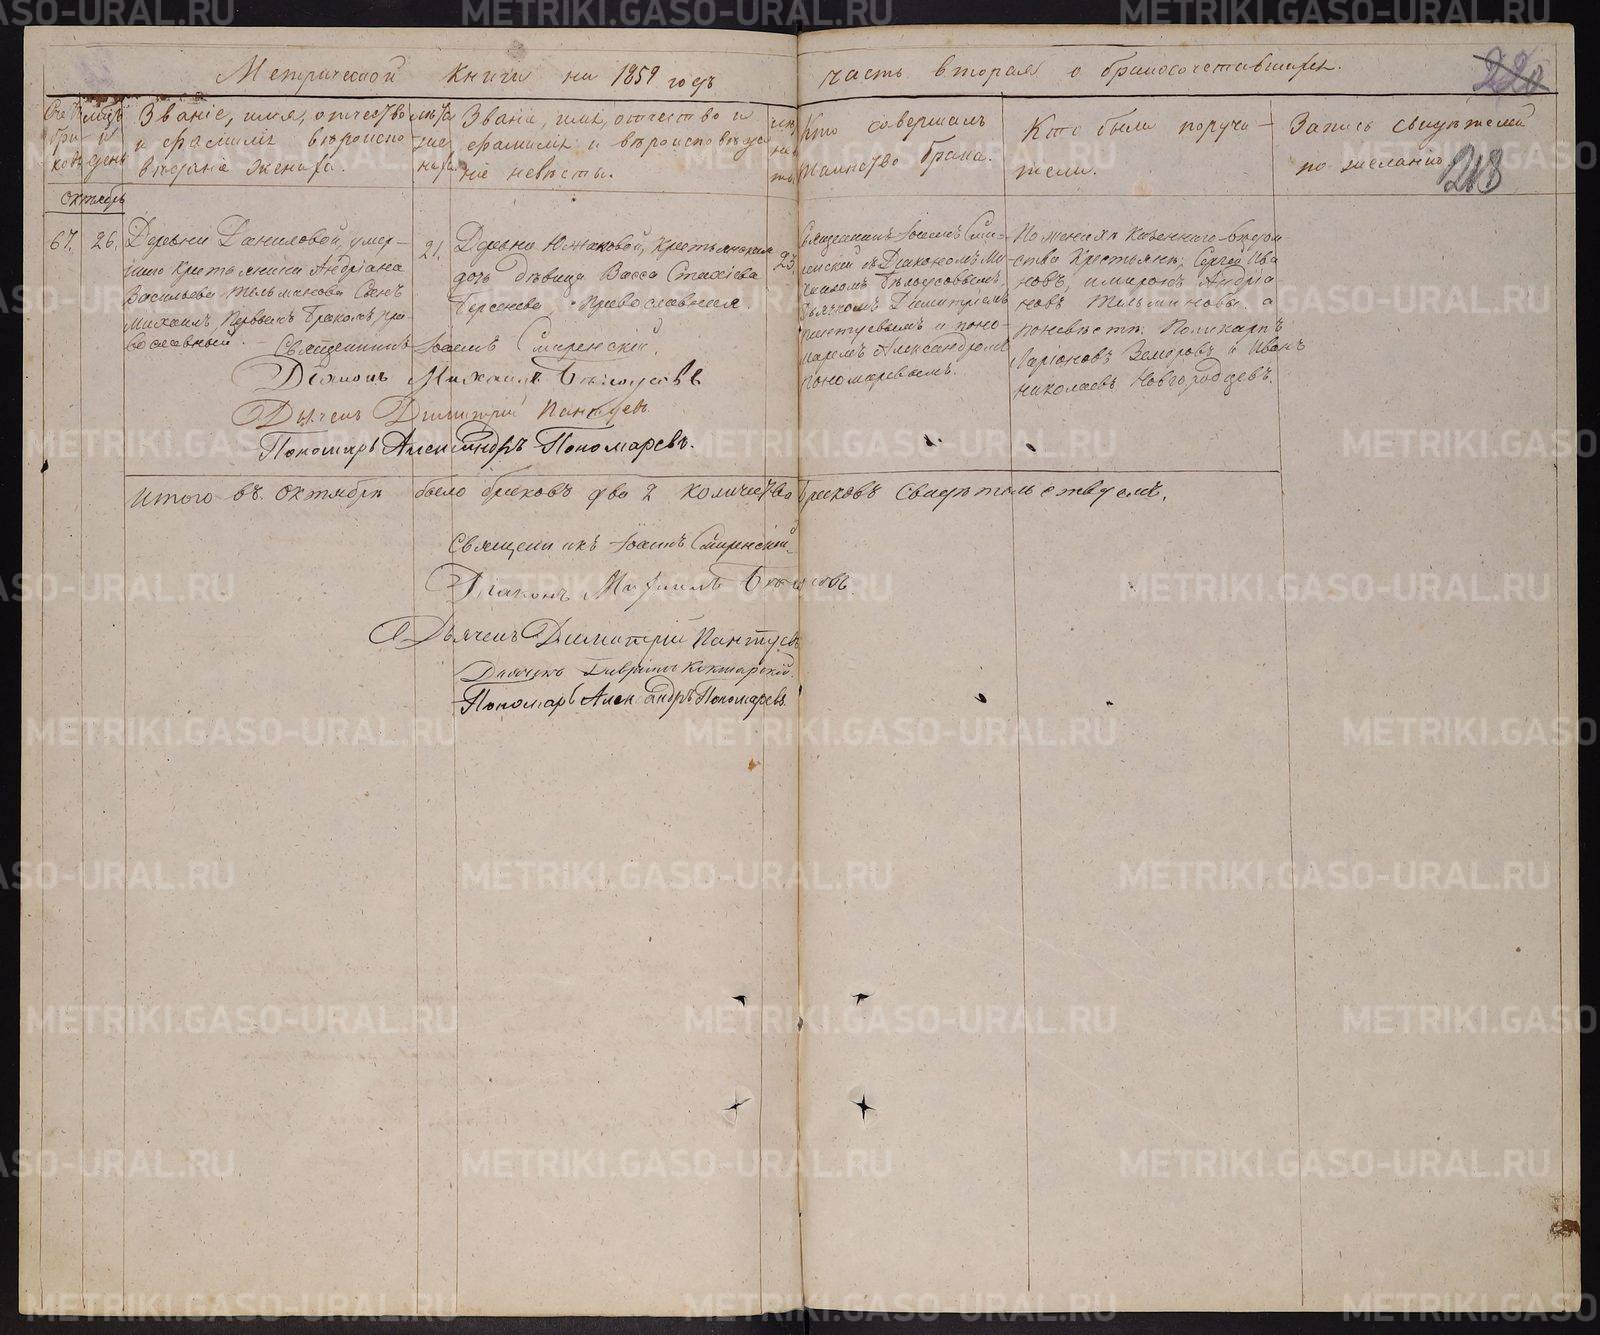 Метрической книги на 1859 годъ часть вторая о бракосочетавшихся.
220
218
Звание, имя, отчество
и фамилія вѣроиспо
вѣданіе жениха.
Званіе, имя, отчество и
фамилія и вѣроисповѣда
ніе невѣсты.
Кто совершалъ
таинство брака.
Кто были поручи-
тели.
Запись свидѣтелей
по желанію
Октябрь
67. 26.
Деревни Даниловой, умер-
шаго крестьянина Андріана
Васильева Тельминова Сынъ
Михаилъ, Первымъ бракомъ, пра-
вославный.
21.
Деревни Южаковой, Крестьянская
дочь дѣвица Васса Стахіева
Берсенева, Православная.
23.
Священникъ Іоаннъ Сми-
ренскій съ Діакономъ Ми-
хаиломъ Бѣлоусовымъ,
Дьячкомъ Димитріемъ
Пантуевымъ и поно-
маремъ Александромъ
Пономаревымъ.
По женихѣ Казеннаго ведом
ства Крестьяне: Сергей Ива
новъ, и Миронъ Андріа
новъ Тельминовы. а
по невѣстѣ: Поликарпъ
Ларіоновъ и Иванъ
Николаевъ Новгородцевъ.
Священникъ Іоаннъ Смиренскій.
Діаконъ Михаилъ Бѣлоусовъ
Дьячекъ Димитрій Пантуевъ.
Пономарь Александръ Пономаревъ.
Итого въ Октябрѣ было браковъ два 2 количество браковъ свидѣтельствуемъ.
Священникъ Іоаннъ Смиренскій
Діаконъ Михаилъ Бѣлоусовъ
Дьячекъ Димитрій Пантуевъ
Дьячекъ Гавріилъ
Пономарь Александръ Пономаревъ.
METRIKI.GASO-URAL.RU